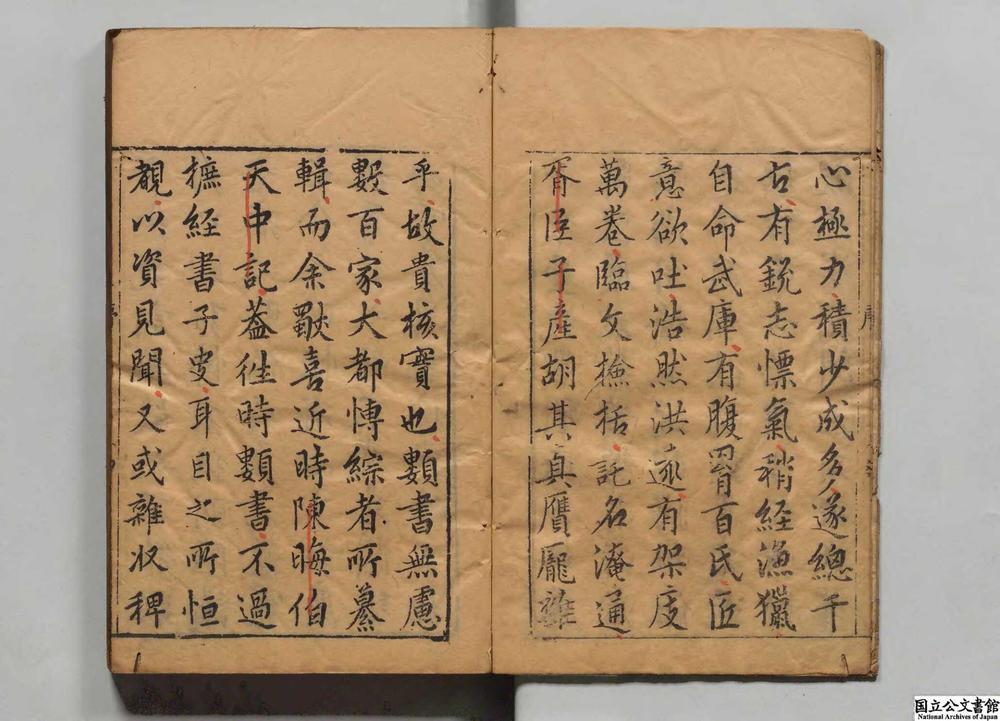 心極力積少成多遂總千
古有銳志慓氣稍經漁獵
自命武庫有腹笥百氏匠
意欲吐浩然洪遠有架庋
萬卷臨文撿括託名淹通
胥臣子產胡其真贋龎雜
乎故貴核實也類書無慮
數百家大都博綜者所纂
輯而余獨喜近時陳晦伯
天中記蓋徃時類書不過
摭經書子史耳目之所恒
覩以資見聞又或雜収稗
序
国立公文書館
National Archives of Japan